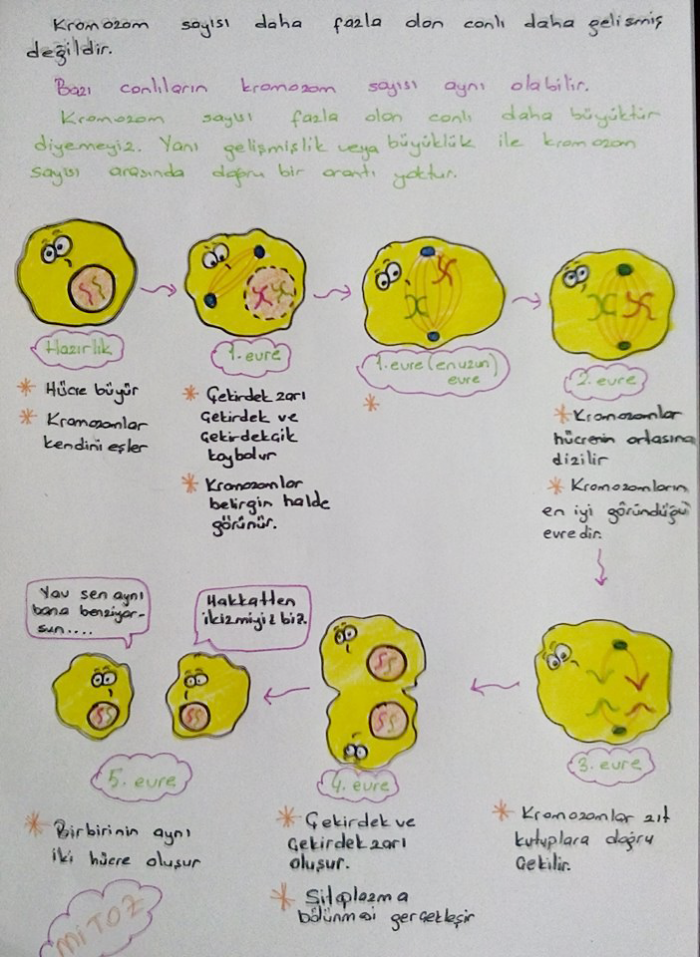 Kromozom sayısı daha fazla olan canlı daha gelişmiş
değildir.
Bazı canlıların kromozom sayısı aynı olabilir.
Kromozom sayısı fazla olan canlı daha büyüktür
diyemeyiz. Yani gelişmişlik veya büyüklük ile kromozon
sayısı arasında doğru bir orantı yoktur.
Hazırlık
* Hücre büyür
* Kromozomlar
kendini eşler
1. evre
* Çekirdek zarı
Çekirdek ve
Çekirdekçik
kaybolur
* Kromozomlar
belirgin halde
görünür.
1. evre (en uzun)
evre
*
2. evre
* Kromozomlar
hücrenin ortasına
dizilir
* Kromozomların
en iyi göründüğü
evredir.
3. evre
* Kromozomlar zıt
kutuplara doğru
Çekilir.
4. evre
* Çekirdek ve
Çekirdek zarı
oluşur.
* Sitoplazma
bölünmesi gerçekleşir
Hakkatten
ikizmiyiz biz.
Yav sen aynı
bana benziyor-
sun....
5. evre
* Birbirinin aynı
iki hücre oluşur
MİTOZ